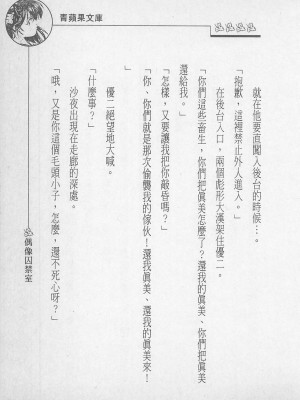 青蘋果文庫
就在他要直闖入後台的時候…。
「抱歉，這裡禁止外人進入。」
在後台入口，兩個彪形大漢架住優二。
「你們這些畜生，你們把真美怎麼了？還我的真美、你們把真美
還給我。」
「怎樣，又要讓我把你敲昏嗎？」
「你、你們就是那次偷襲我的傢伙！還我真美、還我的真美來！
」
優二絕望地大喊。
「什麼事？」
沙夜出現在走廊的深處。
「哦，又是你這個毛頭小子，怎麼，還不死心呀？」
偶像囚禁室